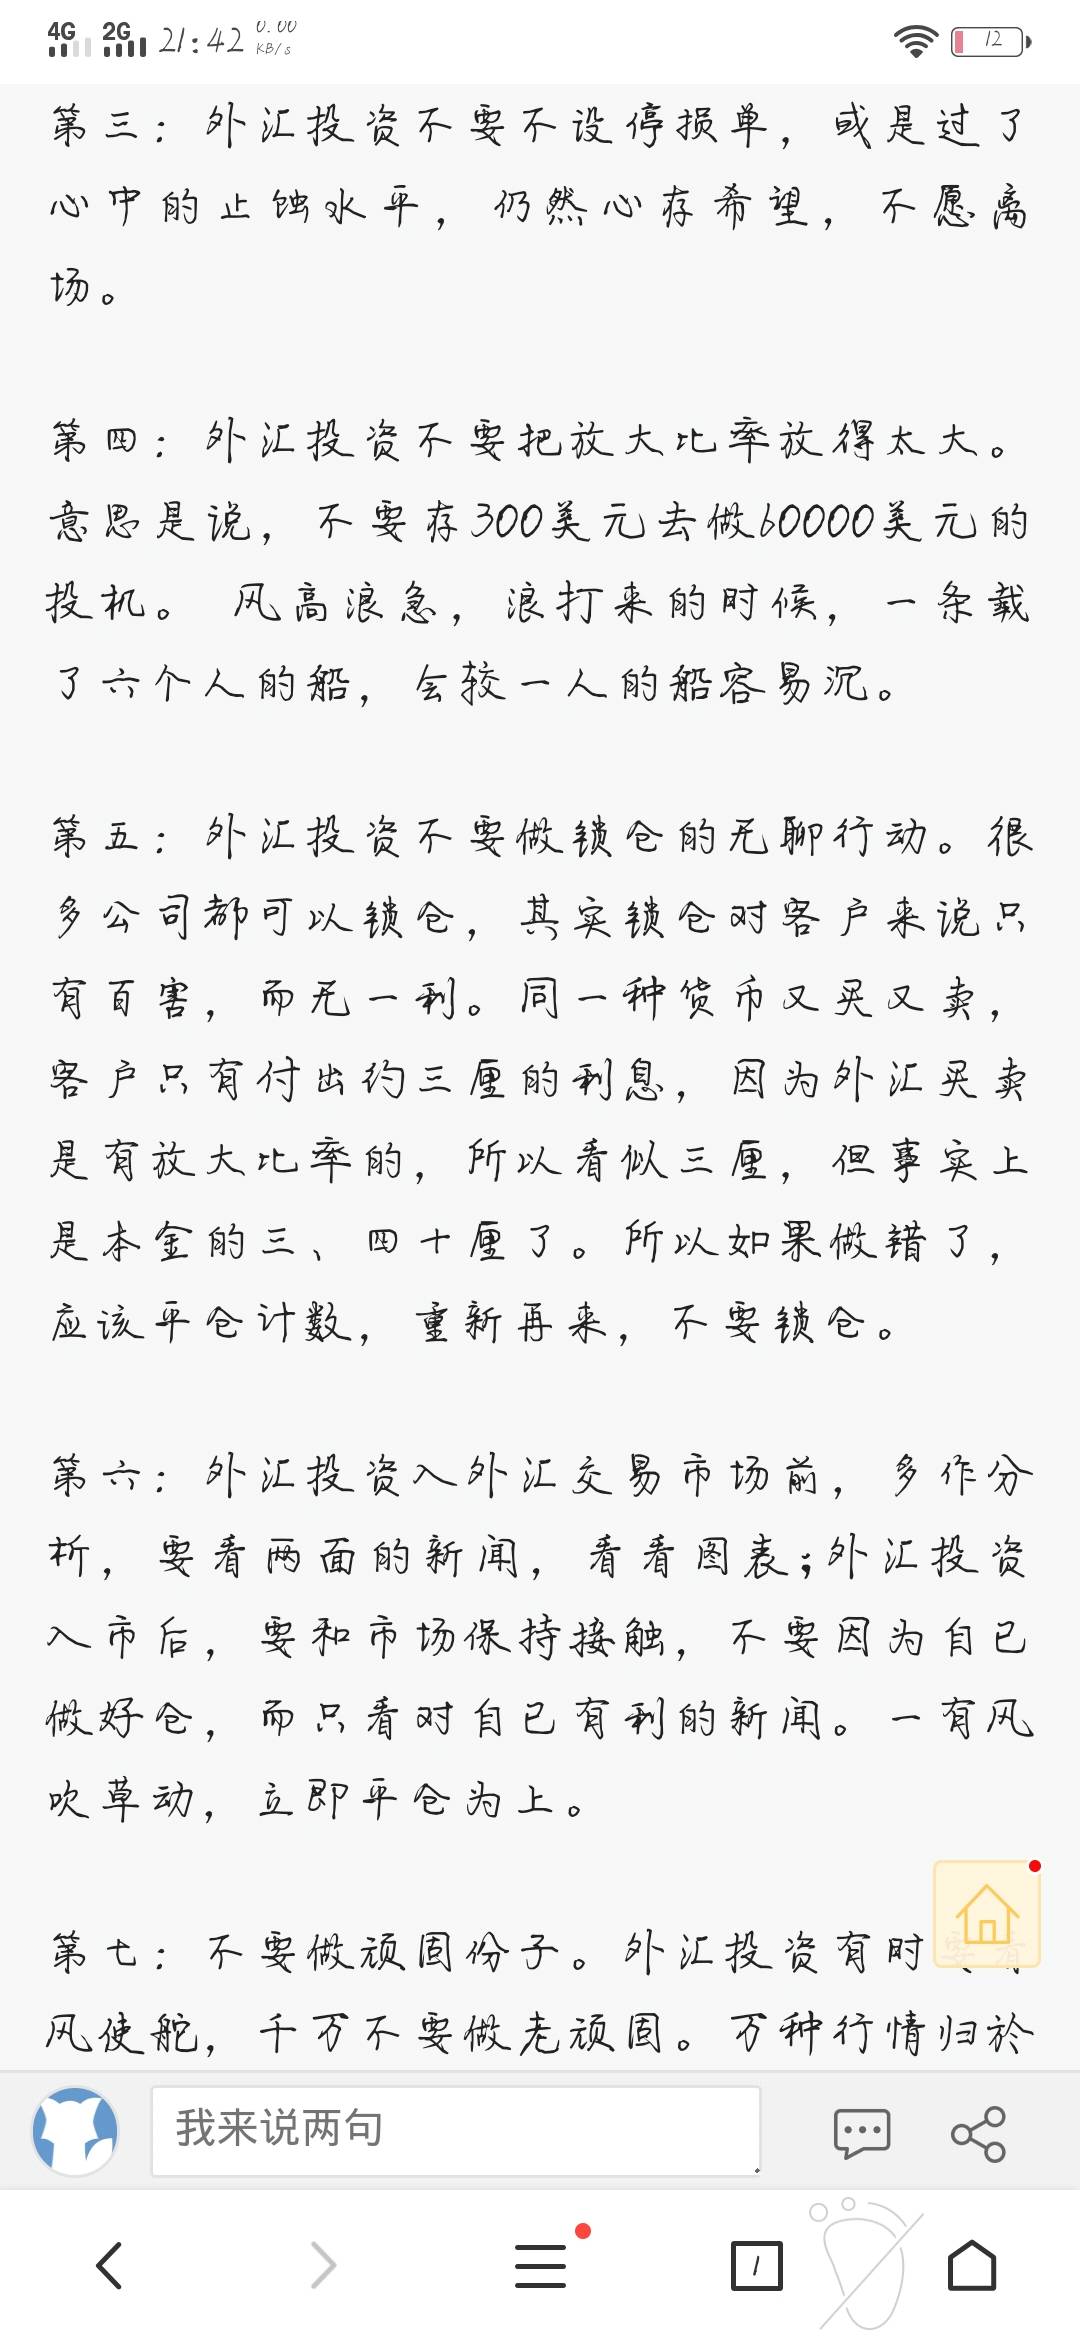 4G 2G 21:42 0.00 KB/s 12
第三：外汇投资不要不设停损单，或是过了
心中的止蚀水平，仍然心存希望，不愿离
场。
第四：外汇投资不要把放大比率放得太大。
意思是说，不要存300美元去做60000美元的
投机。 风高浪急，浪打来的时候，一条载
了六个人的船，会较一人的船容易沉。
第五：外汇投资不要做锁仓的无聊行动。很
多公司都可以锁仓，其实锁仓对客户来说只
有百害，而无一利。同一种货币又买又卖，
客户只有付出约三厘的利息，因为外汇买卖
是有放大比率的，所以看似三厘，但事实上
是本金的三、四十厘了。所以如果做错了，
应该平仓计数，重新再来，不要锁仓。
第六：外汇投资入外汇交易市场前，多作分
析，要看两面的新闻，看看图表；外汇投资
入市后，要和市场保持接触，不要因为自已
做好仓，而只看对自已有利的新闻。一有风
吹草动，立即平仓为上。
第七：不要做顽固份子。外汇投资有时要看
风使舵，千万不要做老顽固。万种行情归於
我来说两句
1